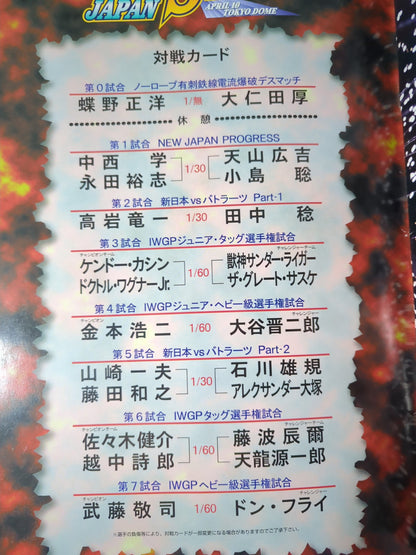 JAPAN
APRIL 10
TOKYO DOME
対戦カード
第0試合 ノーロープ有刺鉄線電流爆破デスマッチ
蝶野正洋 1/無 大仁田厚
休 憩
第1試合 NEW JAPAN PROGRESS
中西 学 天山広吉
1/30
永田裕志 小島 聡
第2試合 新日本vsバトラーツ Part-1
高岩竜一 1/30 田中 稔
第3試合 IWGPジュニア・タッグ選手権試合
チャンピオンチーム チャレンジャーチーム
ケンドー・カシン 獣神サンダー・ライガー
1/60
ドクトル・ワグナーJr. ザ・グレート・サスケ
第4試合 IWGPジュニア・ヘビー級選手権試合
チャンピオン チャレンジャー
金本浩二 1/60 大谷晋二郎
第5試合 新日本vsバトラーツ Part-2
山崎一夫 石川雄規
1/30
藤田和之 アレクサンダー大塚
第6試合 IWGPタッグ選手権試合
チャンピオンチーム チャレンジャーチーム
佐々木健介 藤波辰爾
1/60
越中詩郎 天龍源一郎
第7試合 IWGPヘビー級選手権試合
チャンピオン チャレンジャー
武藤敬司 1/60 ドン・フライ
※選手の負傷等により、対戦カードが一部変更になる場合がありますのでご了承下さい。